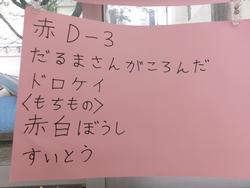 赤D-3
だるまさんがころんだ
ドロケイ
〈もちもの〉
赤白ぼうし
すいとう